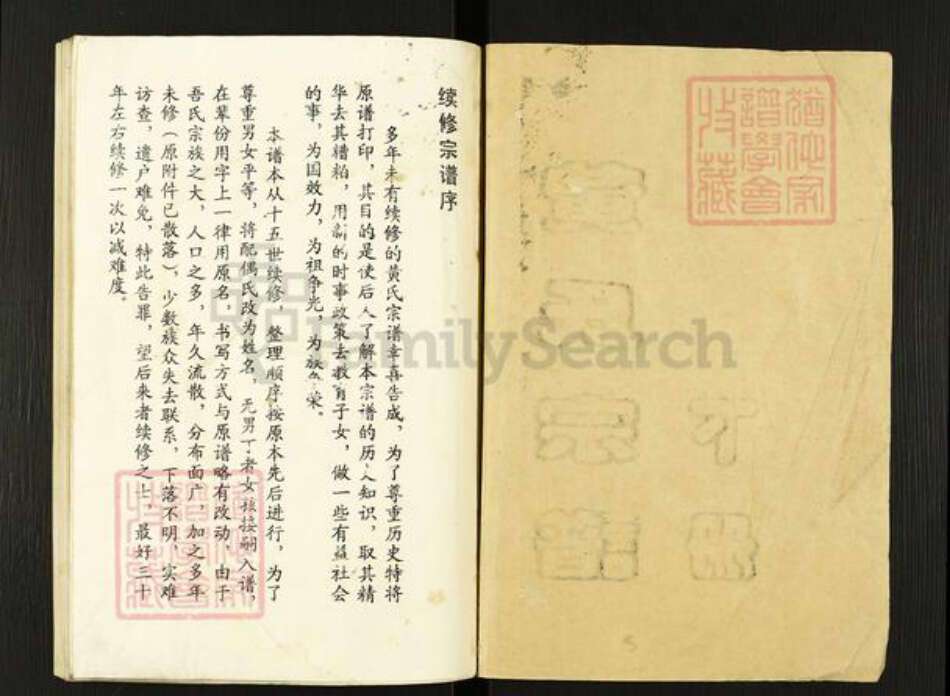 续修宗谱序
多年未有续修的黄氏宗谱幸喜告成，为了尊重历史特将
原谱打印，其目的是使后人了解本宗谱的历人知识，取其精
华去其糟粕，用新的时事政策去教育子女，做一些有益社会
的事，为国效力，为祖争光，为族荣。
本谱本从十五世续修，整理顺序按原本先后进行，为了
尊重男女平等，将配偶氏改为姓名，无男丁者女孩接嗣入谱，
在辈份用字上一律用原名，书写方式与原谱略有改动，由于
吾氏宗族之大，人口之多，年久流散，分布面广，加之多年
未修（原附件已散落），少数族众失去联系，下落不明，实难
访查，遗户难免，特此告罪，望后来者续修之士，最好三十
年左右续修一次以减难度。
FamilySearch
猶他家
譜學會
收藏
宗譜
册